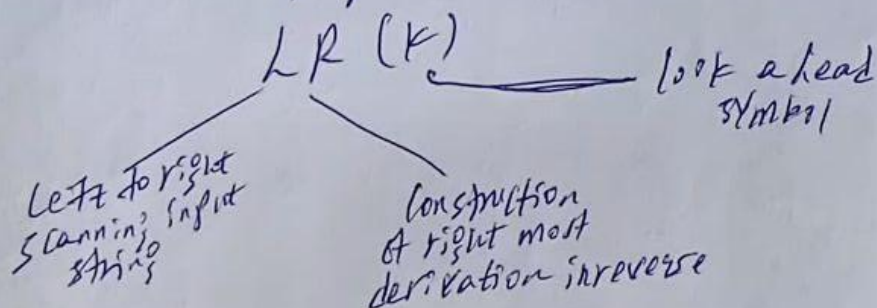 LR (K)
look a head
symbol
Left to right
scanning input
string
Construction
of right most
derivation inreverse